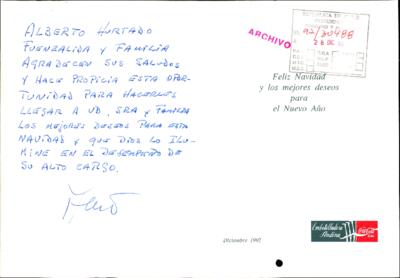 ALBERTO HURTADO
FUENZALIDA Y FAMILIA
AGRADECEN SUS SALUDOS
Y HACE PROPICIA ESTA OPOR-
TUNIDAD PARA HACERLES
LLEGAR A UD. SRA Y FAMILIA
LOS MEJORES DESEOS PARA ESTA
NAVIDAD Y QUE DIOS LO ILU-
MINE EN EL DESEMPEÑO DE
SU ALTO CARGO.
ARCHIVO
92/30488
28 DIC
Feliz Navidad
y los mejores deseos
para
el Nuevo Año
Diciembre 1992
Embotelladora
Andina
Coca-Cola